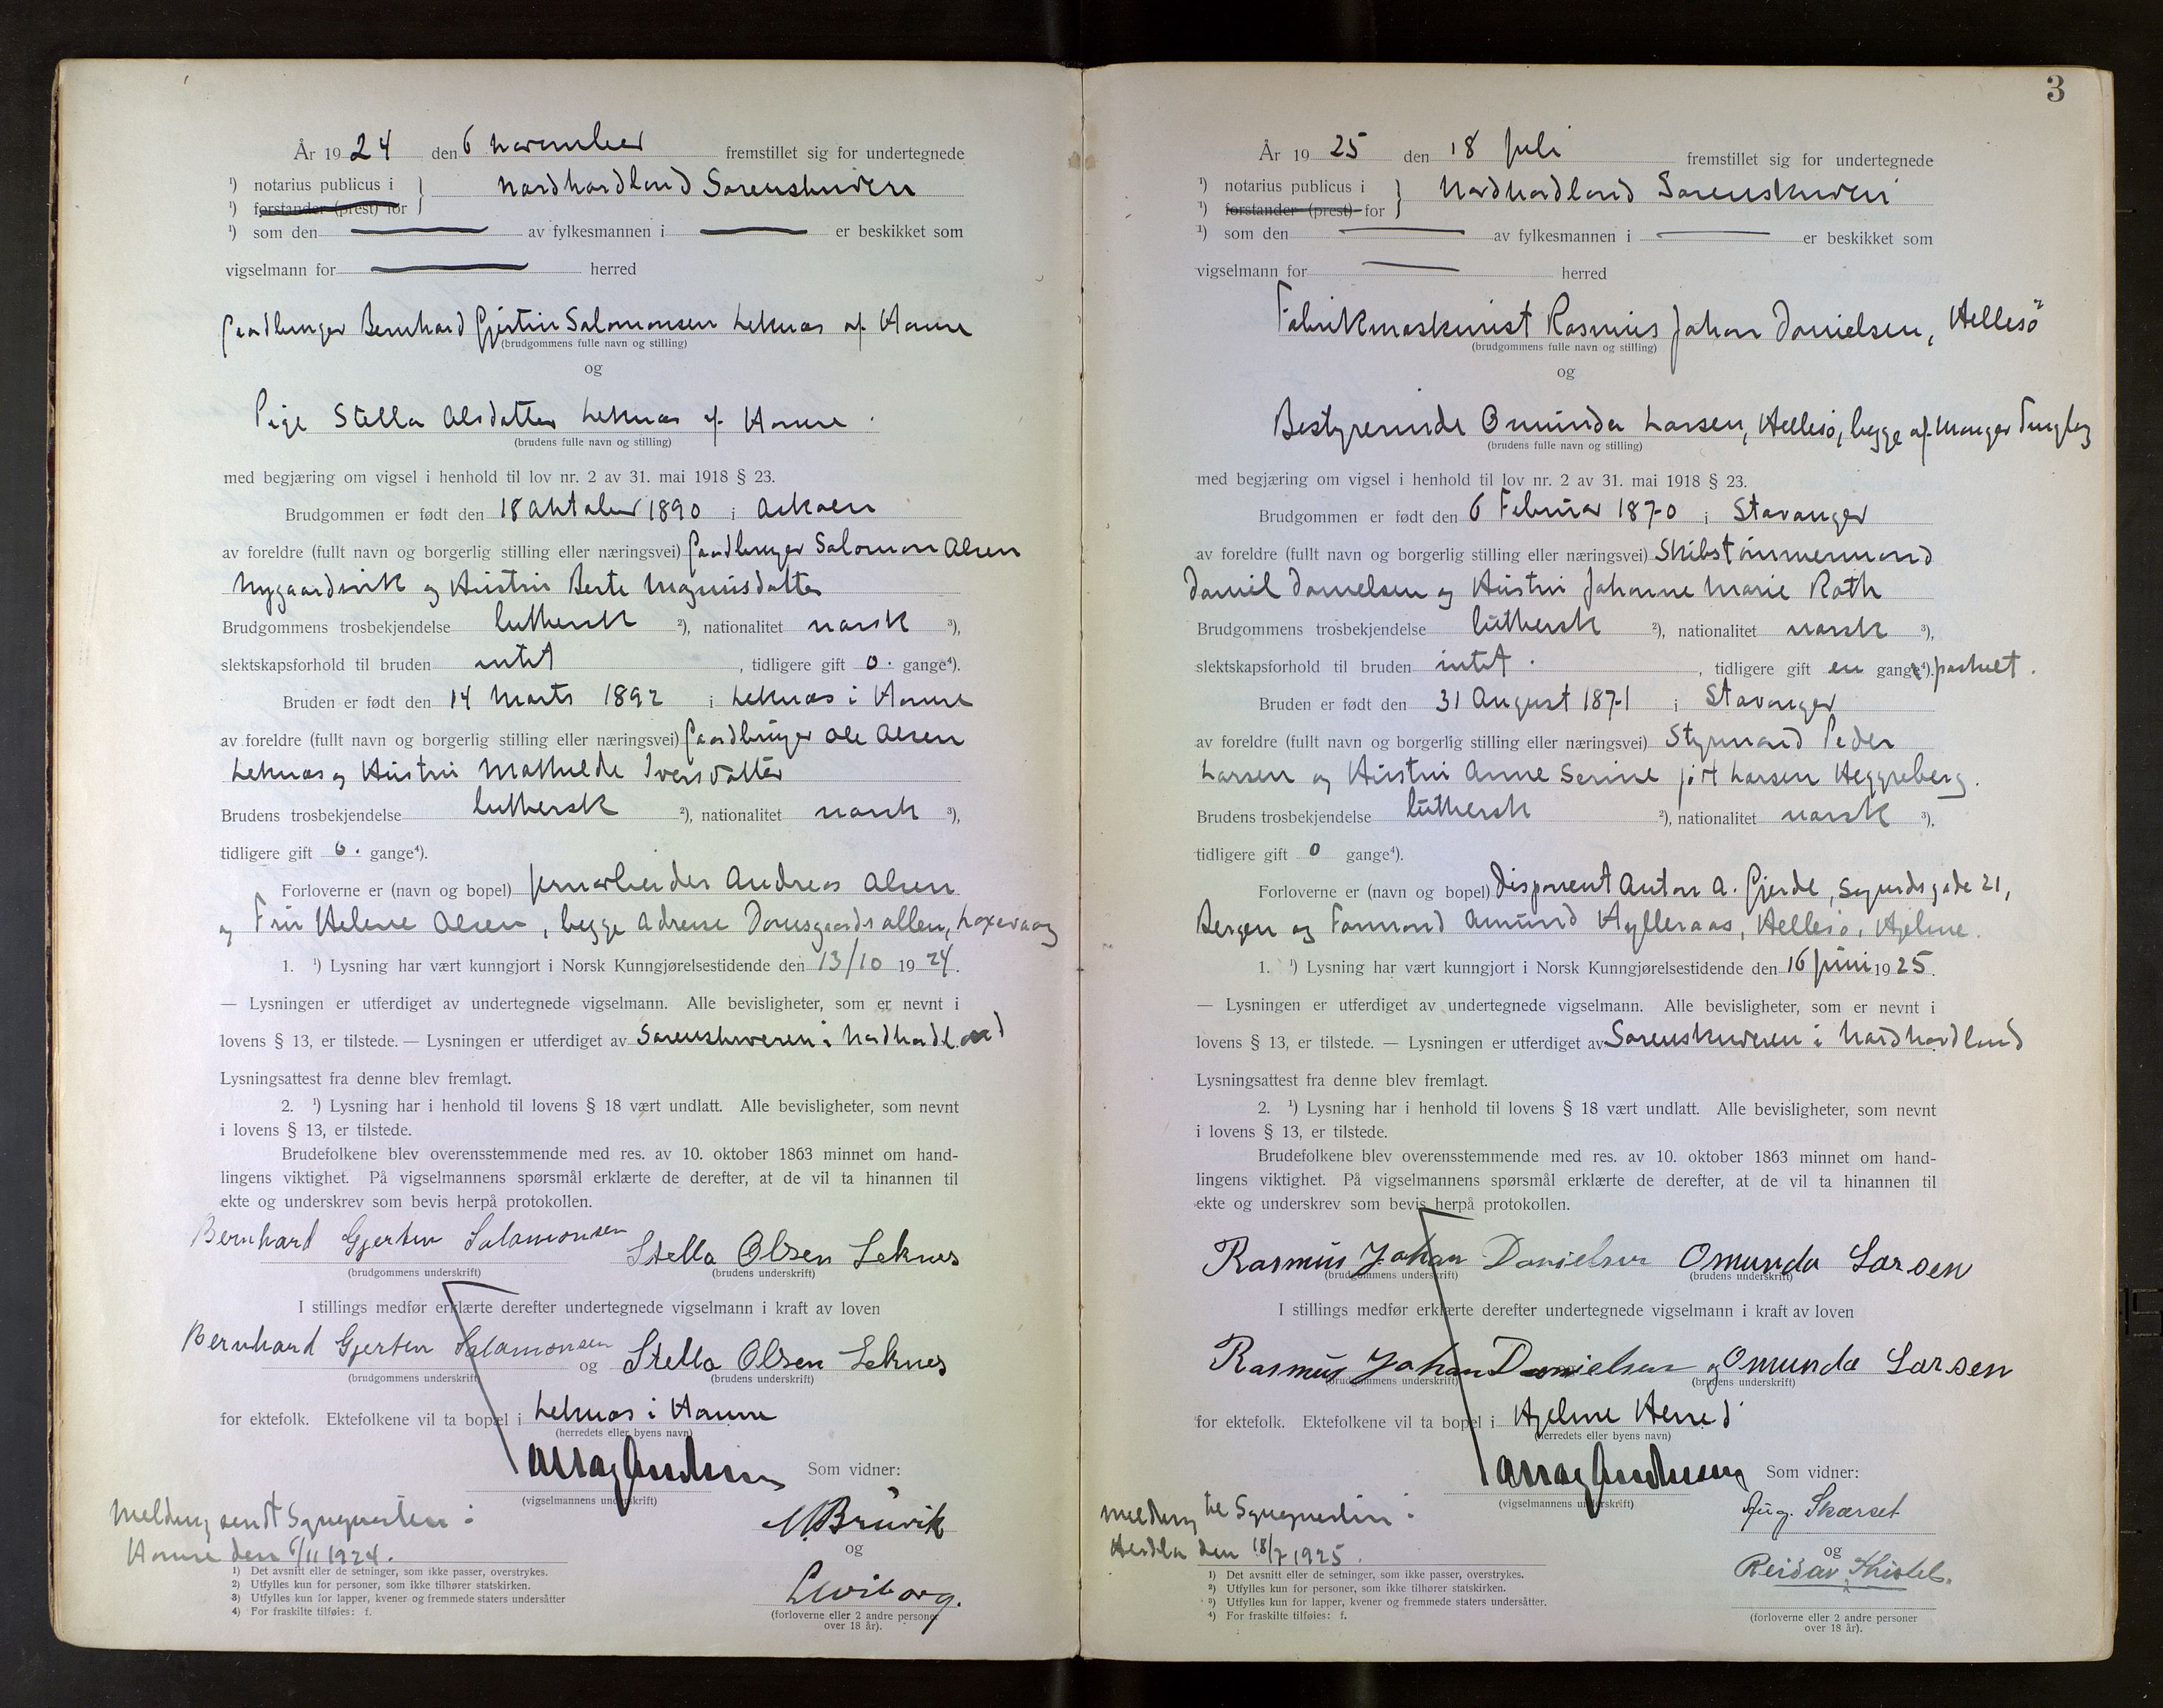 År 1924 den 6 november fremstillet sig for undertegnede
¹) notarius publicus i
¹) forstander (prest) for } Nordhordland Sorenskriveri
¹) som den av fylkesmannen i er beskikket som
vigselmann for herred
Gaardbruger Bernhard Gjertin Salomonsen Leknes af Hamre
(brudgommens fulle navn og stilling)
og
Pige Stella Olsdatter Leknes af Hamre.
(brudens fulle navn og stilling)
med begjæring om vigsel i henhold til lov nr. 2 av 31. mai 1918 § 23.
Brudgommen er født den 18 Oktober 1890 i Askøen
av foreldre (fullt navn og borgerlig stilling eller næringsvei) Gaardbruger Salomon Olsen
Nygaardsvik og Hustru Berte Magnusdatter
Brudgommens trosbekjendelse luthersk ²), nationalitet norsk ³),
slektskapsforhold til bruden intet, tidligere gift 0. gange⁴).
Bruden er født den 14 Marts 1892 i Leknes i Hamre
av foreldre (fullt navn og borgerlig stilling eller næringsvei) Gaardbruger Ole Olsen
Leknes og Hustru Mathilde Iversdatter
Brudens trosbekjendelse luthersk ²), nationalitet norsk ³),
tidligere gift 0. gange⁴).
Forloverne er (navn og bopel) Jernarbeider Andreas Olsen
og Fru Helene Olsen, begge Adresse Damsgaards alleen, Laxevaag
1. ¹) Lysning har vært kunngjort i Norsk Kunngjørelsestidende den 13/10 1924.
— Lysningen er utferdiget av undertegnede vigselmann. Alle bevisligheter, som er nevnt i
lovens § 13, er tilstede. — Lysningen er utferdiget av Sorenskriveren i Nordhordland
Lysningsattest fra denne blev fremlagt.
2. ¹) Lysning har i henhold til lovens § 18 vært undlatt. Alle bevisligheter, som nevnt
i lovens § 13, er tilstede.
Brudefolkene blev overensstemmende med res. av 10. oktober 1863 minnet om hand-
lingens viktighet. På vigselmannens spørsmål erklærte de derefter, at de vil ta hinannen til
ekte og underskrev som bevis herpå protokollen.
Bernhard Gjerten Salamonsen Stella Olsen Leknes
(brudgommens underskrift) (brudens underskrift)
I stillings medfør erklærte derefter undertegnede vigselmann i kraft av loven
Bernhard Gjerten Salamonsen og Stella Olsen Leknes
(brudgommens underskrift) (brudens underskrift)
for ektefolk. Ektefolkene vil ta bopel i Leknes i Hamre
(herredets eller byens navn)
Som vidner:
(vigselmannens underskrift)
Melding sendt Sogneprsten i
Hamre den 6/11 1924.
Bruvik
og
(forloverne eller 2 andre personer
over 18 år).
1) Det avsnitt eller de setninger, som ikke passer, overstrykes.
2) Utfylles kun for personer, som ikke tilhører statskirken.
3) Utfylles kun for lapper, kvener og fremmede staters undersåtter
4) For fraskilte tilføies: f.
3
År 1925 den 18 Juli fremstillet sig for undertegnede
¹) notarius publicus i
¹) forstander (prest) for } Nordhordland Sorenskriveri
¹) som den av fylkesmannen i er beskikket som
vigselmann for herred
Fabrikmaskinist Rasmus Johan Danielsen, Hellesö
(brudgommens fulle navn og stilling)
og
Bestyrerinde Omunda Larsen, Hellesö, begge af Manger Tinglag
(brudens fulle navn og stilling)
med begjæring om vigsel i henhold til lov nr. 2 av 31. mai 1918 § 23.
Brudgommen er født den 6 Februar 1870 i Stavanger
av foreldre (fullt navn og borgerlig stilling eller næringsvei) Skibstømmermand
Daniel Danielsen og Hustru Johanne Marie Roth
Brudgommens trosbekjendelse luthersk ²), nationalitet norsk ³),
slektskapsforhold til bruden intet., tidligere gift en gange⁴). fraskilt.
Bruden er født den 31 August 1871 i Stavanger
av foreldre (fullt navn og borgerlig stilling eller næringsvei) Styrmand Peder
Larsen og Hustru Anne Serine født Larsen Heggreberg.
Brudens trosbekjendelse luthersk ²), nationalitet norsk ³),
tidligere gift 0 gange⁴).
Forloverne er (navn og bopel) Disponent Anton A. Gjerde, Sigurdsgade 21,
Bergen og Formand Amund Hylleraas, Hellesö, Hjelme.
1. ¹) Lysning har vært kunngjort i Norsk Kunngjørelsestidende den 16 Juni 1925.
— Lysningen er utferdiget av undertegnede vigselmann. Alle bevisligheter, som er nevnt i
lovens § 13, er tilstede. — Lysningen er utferdiget av Sorenskriveren i Nordhordland
Lysningsattest fra denne blev fremlagt.
2. ¹) Lysning har i henhold til lovens § 18 vært undlatt. Alle bevisligheter, som nevnt
i lovens § 13, er tilstede.
Brudefolkene blev overensstemmende med res. av 10. oktober 1863 minnet om hand-
lingens viktighet. På vigselmannens spørsmål erklærte de derefter, at de vil ta hinannen til
ekte og underskrev som bevis herpå protokollen.
Rasmus Johan Danielsen Omunda Larsen
(brudgommens underskrift) (brudens underskrift)
I stillings medfør erklærte derefter undertegnede vigselmann i kraft av loven
Rasmus Johan Danielsen og Omunda Larsen
(brudgommens underskrift) (brudens underskrift)
for ektefolk. Ektefolkene vil ta bopel i Hjelme Herred
(herredets eller byens navn)
Som vidner:
(vigselmannens underskrift)
Melding til Sogneprstin i
Herdla den 18/7 1925.
Aug. Skarset
og
Reidar
(forloverne eller 2 andre personer
over 18 år).
1) Det avsnitt eller de setninger, som ikke passer, overstrykes.
2) Utfylles kun for personer, som ikke tilhører statskirken.
3) Utfylles kun for lapper, kvener og fremmede staters undersåtter.
4) For fraskilte tilføies: f.